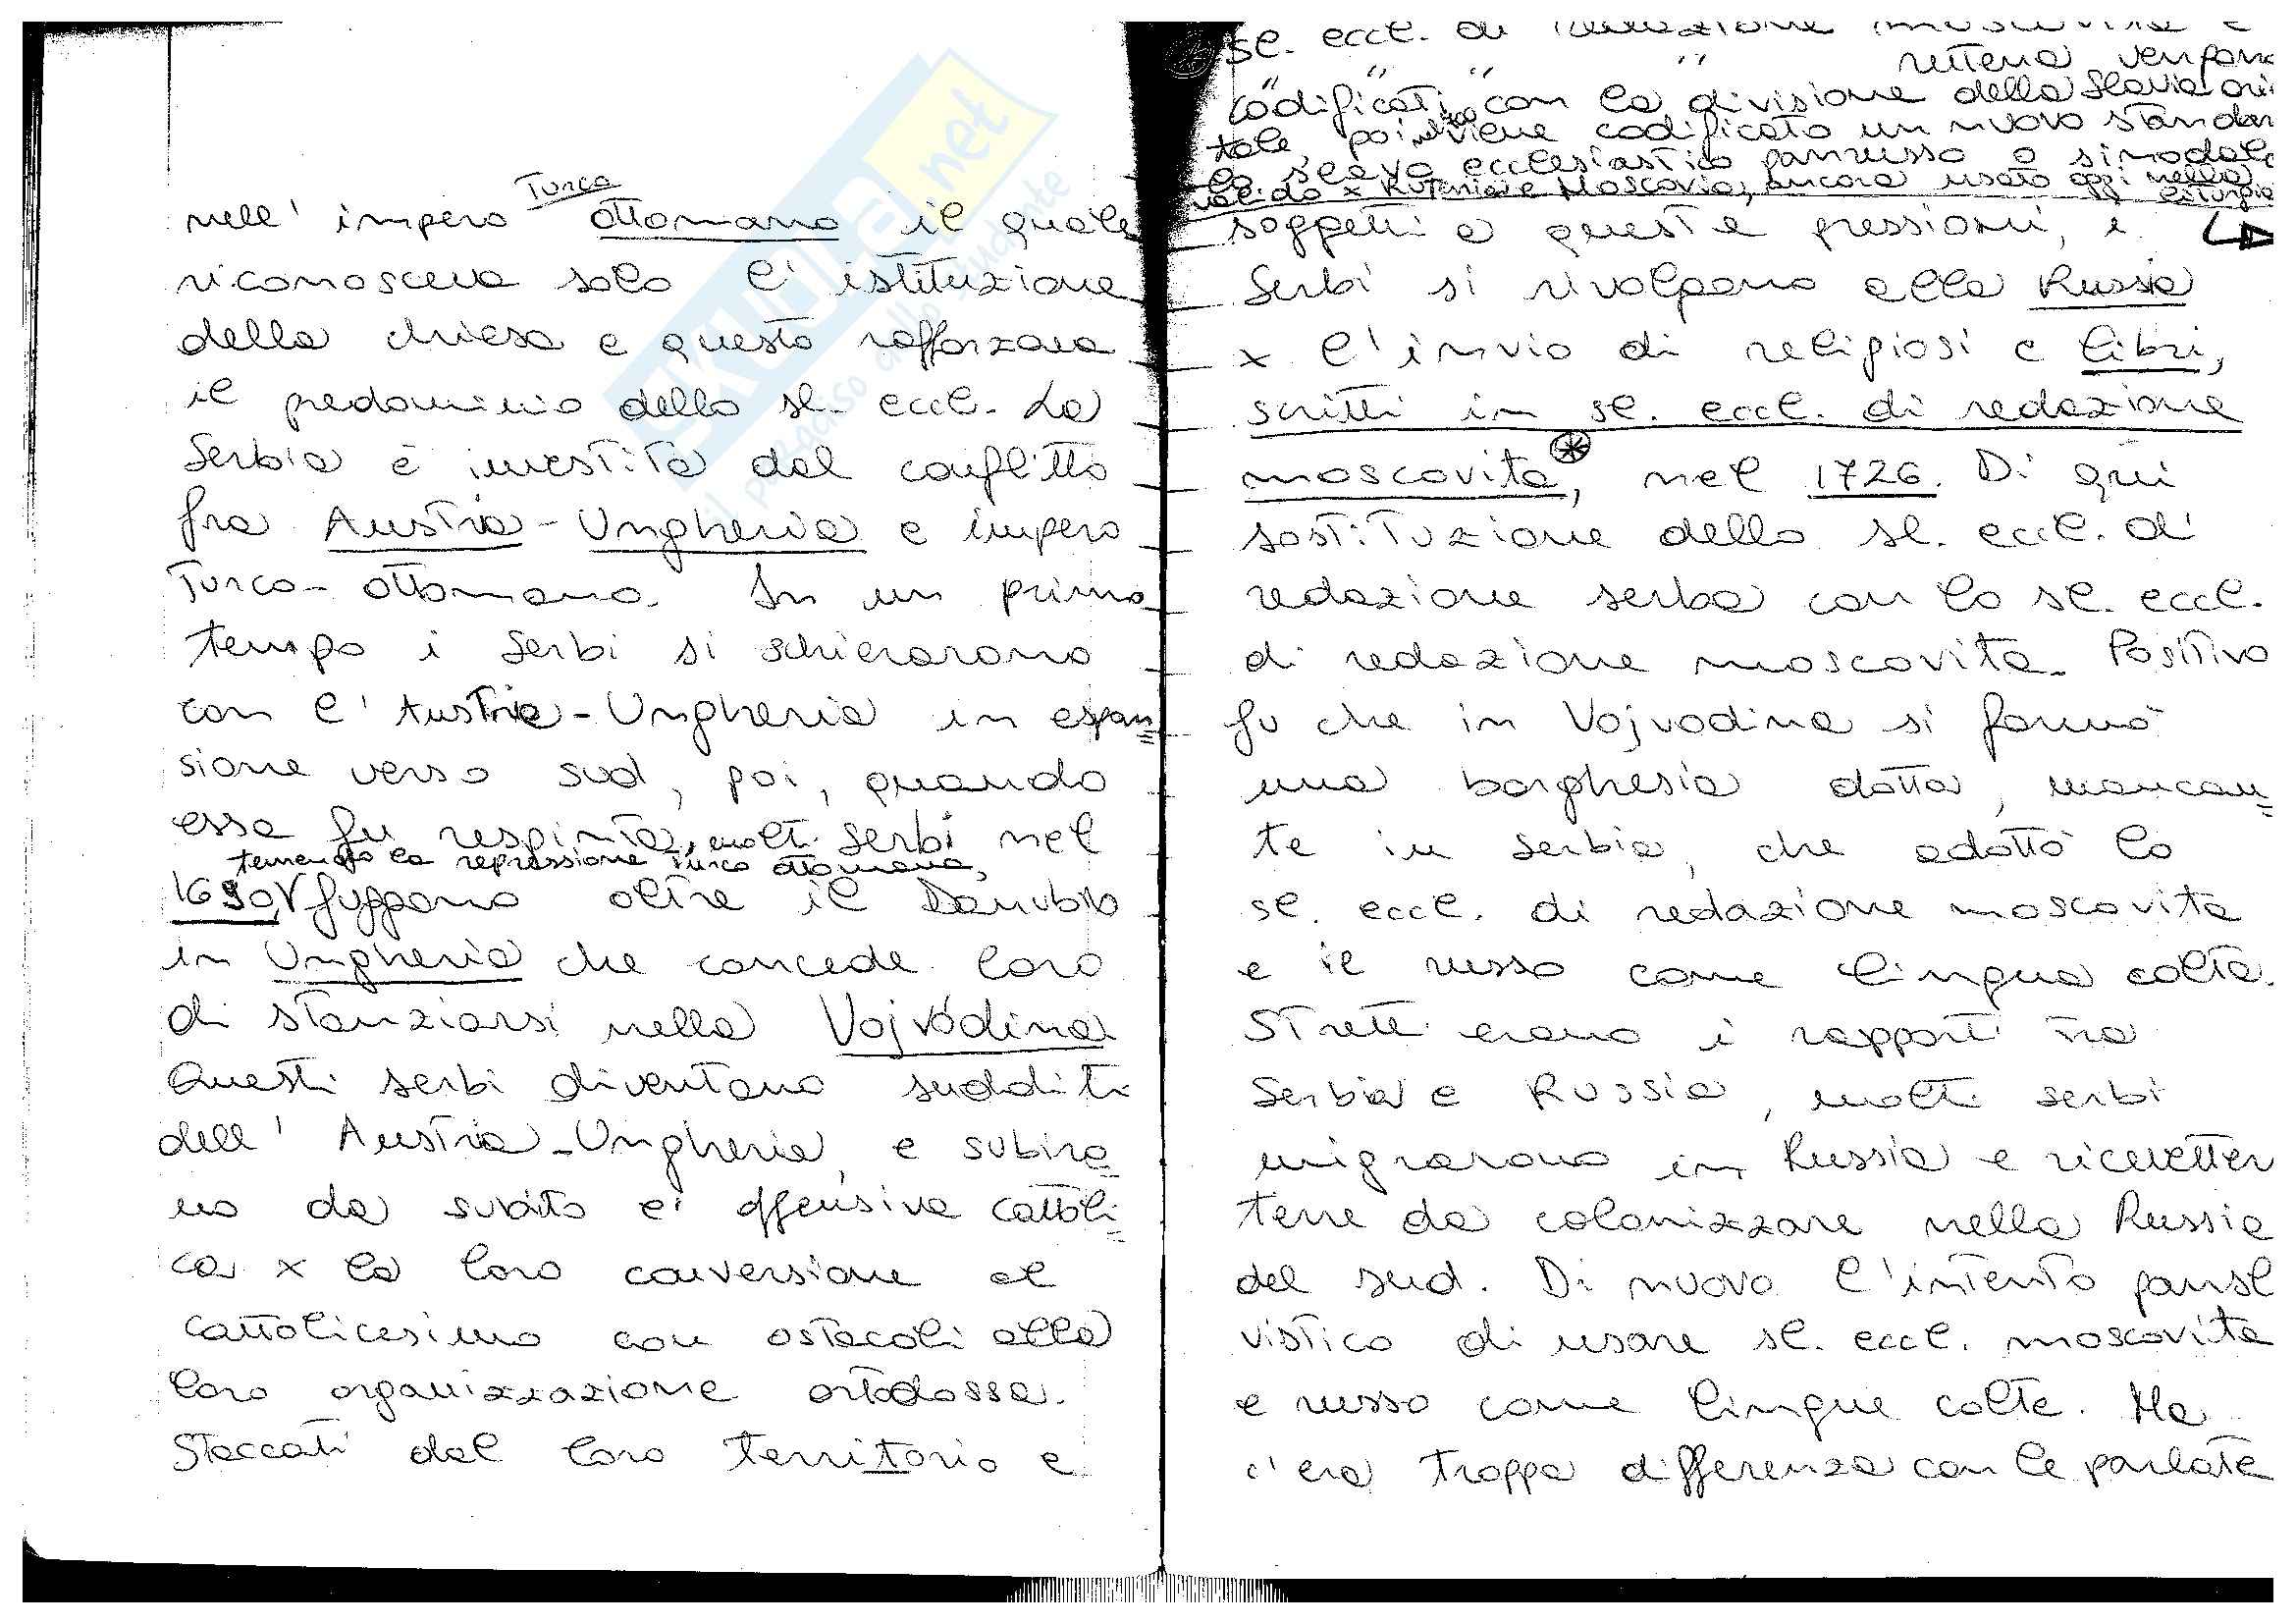 Turco
nell' impero ottomano il quale
riconosceva solo l' istituzione
della chiesa e questo rafforzava
il predominio dello sl. eccl. La
Serbia è investita dal conflitto
fra Austria-Ungheria e impero
Turco-ottomano. In un primo
tempo i Serbi si schierarono
con l' Austria-Ungheria in espan=
sione verso sud, poi, quando
essa fu respinta, molti Serbi nel
temendo la repressione turco ottomana,
1690, fuggono oltre il Danubio
in Ungheria che concede loro
di stanziarsi nella Vojvodina
Questi serbi diventano sudditi
dell' Austria-Ungheria, e subira
no da subito l' offensiva cattoli=
ca x la loro conversione al
cattolicesimo con ostacoli alla
loro organizzazione ortodossa.
Staccati dal loro territorio e
sl. eccl. di redazione moscovita e
" " " " rutena vengono
codificati con la divisione della Slavia orien
tale, poi viene codificato un nuovo standar
lo slavo ecclesiastico panrusso o sinodale
valido x Rutenia e Moscovia, ancora usato oggi nella
liturgia
soggetti a queste pressioni, i
Serbi si rivolgono alla Russia
x l'invio di religiosi e libri,
scritti in sl. eccl. di redazione
moscovita*, nel 1726. Di qui
sostituzione dello sl. eccl. di
redazione serba con lo sl. eccl.
di redazione moscovita. Positivo
fu che in Vojvodina si formò
una borghesia dotta, mancan=
te in Serbia, che adottò lo
sl. eccl. di redazione moscovita
e il russo come lingua colta.
Stretti erano i rapporti tra
Serbia e Russia, molti serbi
migrarono in Russia e ricevetter
terre da colonizzare nella Russia
del sud. Di nuovo l'intento pansl
vistico di usare sl. eccl. moscovita
e russo come lingue colte. Ma
c'era troppa differenza con le parlate
SKUOLA.net
il paradiso dello studente